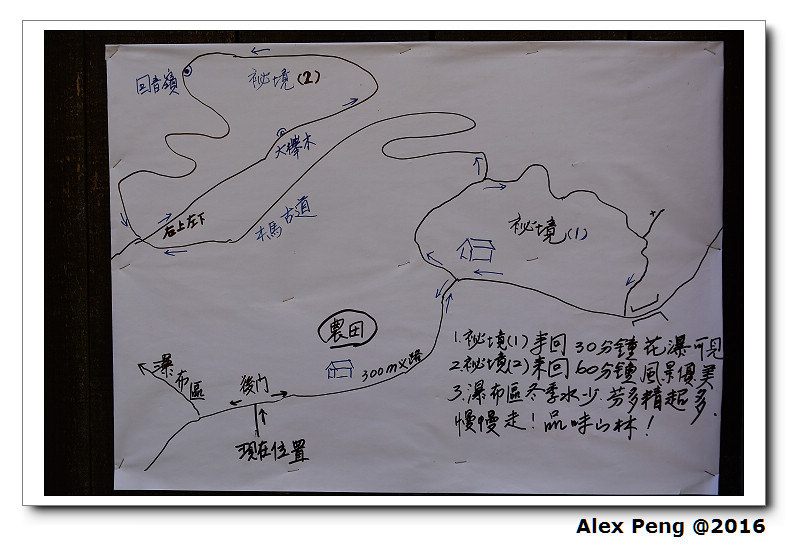 回音嶺
祕境(2)
大櫸木
右上左下
木馬古道
祕境(1)
農田
瀑布區
後门
300m叉路
現在位置
1.祕境(1)來回30分鐘花瀑可見
2.祕境(2)來回60分鐘風景優美
3.瀑布區冬季水少.芬多精超多.
慢慢走！品味山林！
Alex Peng @2016